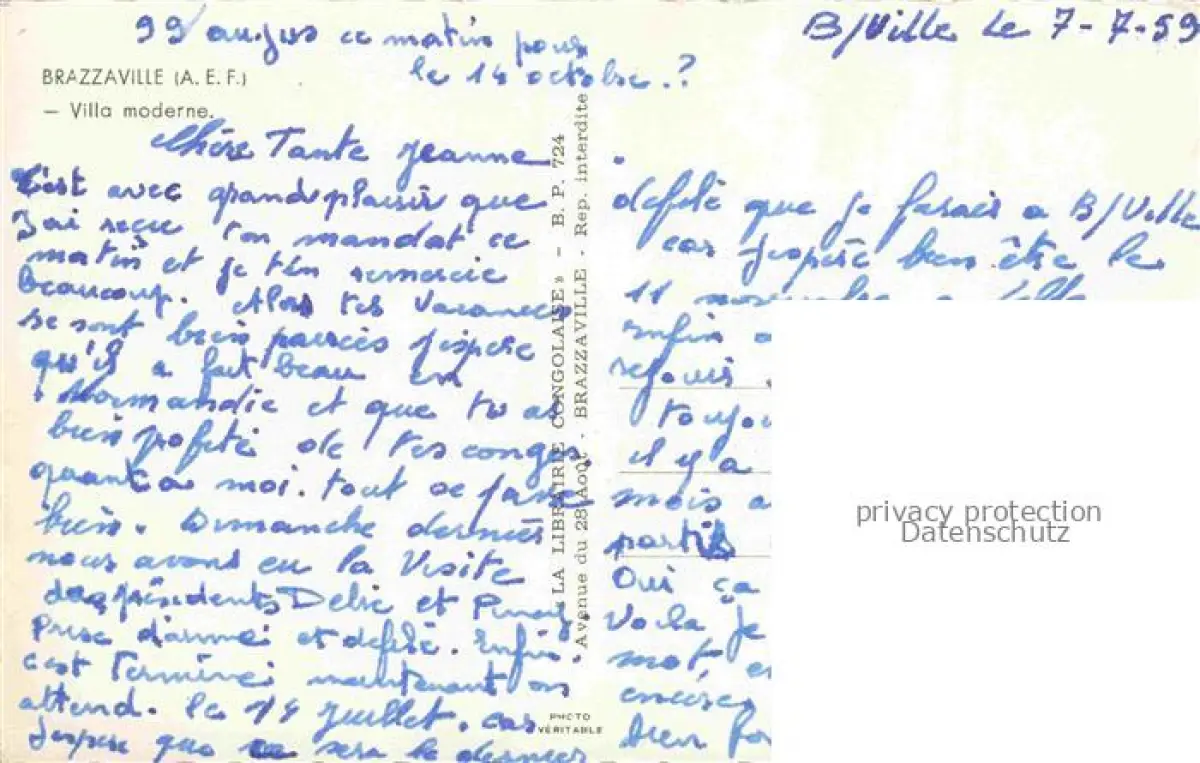 99 au jus ce matin pour
le 14 octobre.?
B/Ville Le 7-7-59
BRAZZAVILLE (A. E. F.)
— Villa moderne.
Chère Tante Jeanne
C'est avec grand plaisir que
J'ai reçue ton mandat ce
matin et je t'en remercie
beaucoup. Alors tes vacances
se sont bien passées j'espère
qu'il a fait beau en
Normandie et que tu as
bien profité de tes congés.
quant a moi. tout se passe
bien. Dimanche dernier
nous avons eu la Visite
des présidents Debré et
prise d'armes et defilé. Enfin.
c'est Terminé maintenant on
attend. le 14 Juillet. car
J'espère que ce sera le dernier
« LA LIBRAIRIE CONGOLAISE » - B. P. 724
Avenue du 28 Août - BRAZZAVILLE - Rep. interdite
PHOTO
VÉRITABLE
defilé que je ferais a B/Ville
car J'espère bien être le
11 novembre a
Enfin
rejouis
toujou
il y a
mois a
partis
Oui ça
Voila je
mot, e
encore
bien fo
privacy protection
Datenschutz